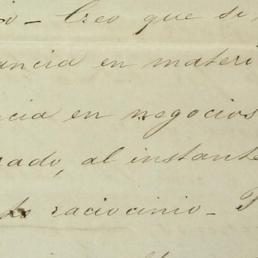 – Creo que si
ancia en materi
cia en negocios
rado, al instante
raciocinio –